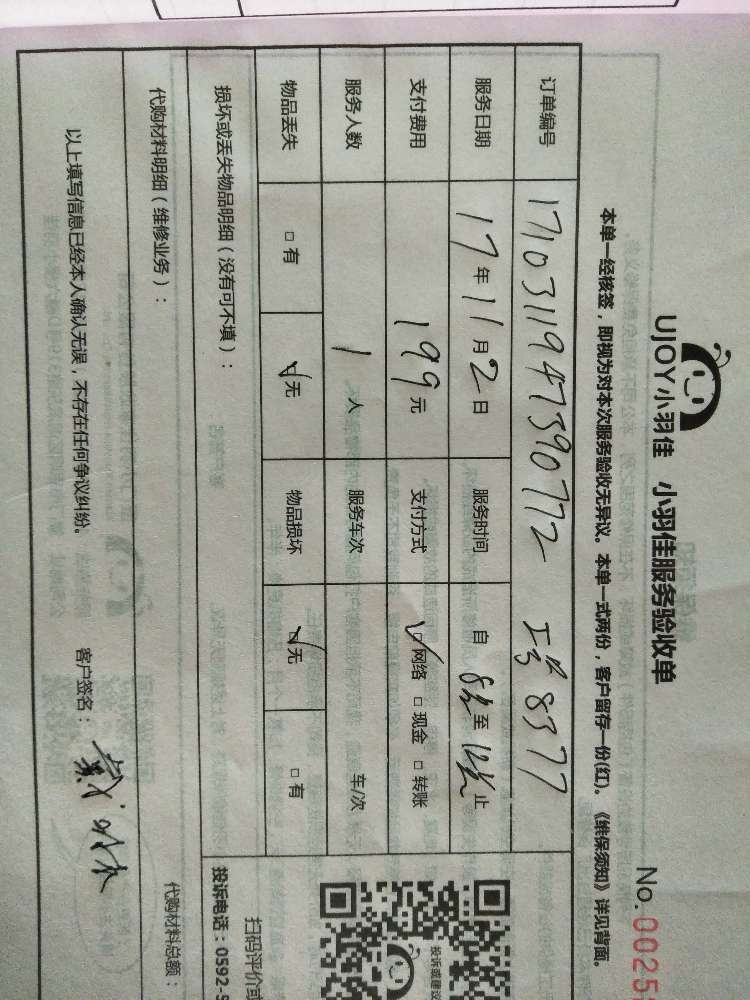 UJOY小羽佳 小羽佳服务验收单
No.0025
本单一经核签，即视为对本次服务验收无异议。本单一式两份，客户留存一份(红)。《维保须知》详见背面。
订单编号 1710311947390772 工号8377
服务日期 17年11月2日 服务时间 自8:30至12:30止
支付费用 199元 支付方式 ☑网络 □现金 □转账
服务人数 1人 服务车次 车/次
物品丢失 □有 ☑无 物品损坏 ☑无 □有
损坏或丢失物品明细（没有可不填）：
代购材料明细（维修业务）： 代购材料总额：
以上填写信息已经本人确认无误，不存在任何争议纠纷。 客户签名：戴
投诉或建议
扫码评价或
投诉电话：0592-5